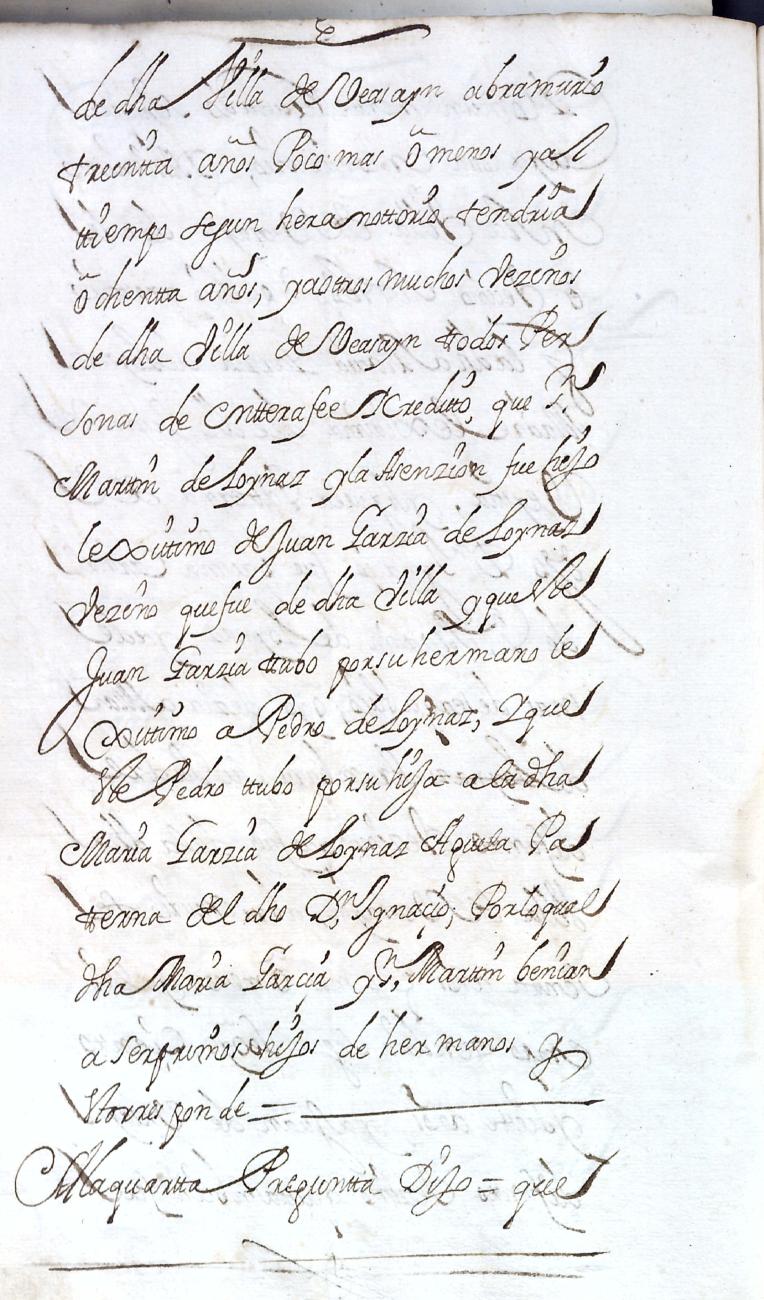 de dha Villa de Veasayn abra murio
treintta años Poco mas ò menos y al
ttiempo segun hera nottorio tendria
ôchentta años, y a otros muchos Vezinos
de dha Villa de Veasayn ttodos Per
sonas de entterafee y Creditto, que Sn.
Marttin de Loynaz y la Asenzion fue hijo
lexitimo de Juan Garzia de Loynaz
Vezino que fue de dha Villa y que Ste
Juan Garzia ttubo por su hermano le
xitimo a Pedro de Loynaz, Y que
Ste Pedro ttubo por su hija a la dha
Maria Garzia de Loynaz Aguela Pa
tterna del dho Dn. Ygnacio; Por lo qual
dha Maria Garcia y Sn. Marttin benian
a ser primos hijos de hermanos y
Storres ponde =
A la quartta Preguntta Dijo = que